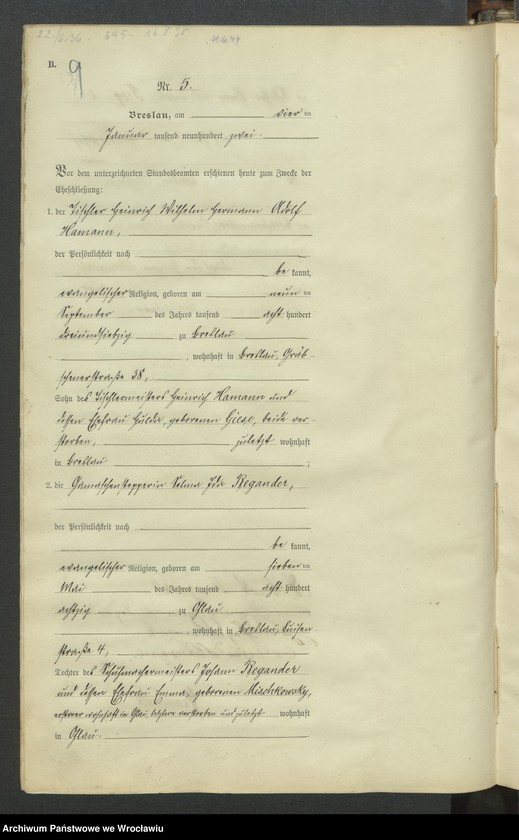 22/6.36. 645- 16.8.38 21.6.49
B. 9
Nr. 5.
Breslau, am vier ten
Januar tausend neunhundert zwei
Vor dem unterzeichneten Standesbeamten erschienen heute zum Zwecke der
Eheschließung:
1. der Tischler Heinrich Wilhelm Hermann Adolf
Hamann,
der Persönlichkeit nach
be kannt,
evangelischer Religion, geboren am neun ten
September des Jahres tausend acht hundert
dreiundsiebzig zu Breslau
, wohnhaft in Breslau, Gräb-
schenerstraße 38,
Sohn des Tischlermeisters Heinrich Hamann und
dessen Ehefrau Hulda, geborenen Giese, beide ver-
storben, zuletzt wohnhaft
in Breslau ;
2. die Gamaschenstepperin Selma Ida Regander,
der Persönlichkeit nach
be kannt,
evangelischer Religion, geboren am sieben ten
Mai des Jahres tausend acht hundert
achtzig zu Ohlau
, wohnhaft in Breslau,
straße 4,
Tochter des Schuhmachermeisters Johann Regander
und dessen Ehefrau Emma, geborenen Mischkowsky,
ersterer wohnhaft in Ohlau, letztere verstorben und zuletzt wohnhaft
in Ohlau.
Archiwum Państwowe we Wrocławiu